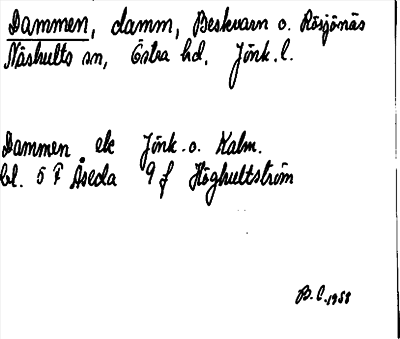 Dammen, damm, Beskvarn o. Rösjönäs
Näshults sn, Östra hd, Jönk. l.
Dammen ek Jönk. o. Kalm.
bl. 5 F Åseda 9 f Höghultström
B. C. 1958